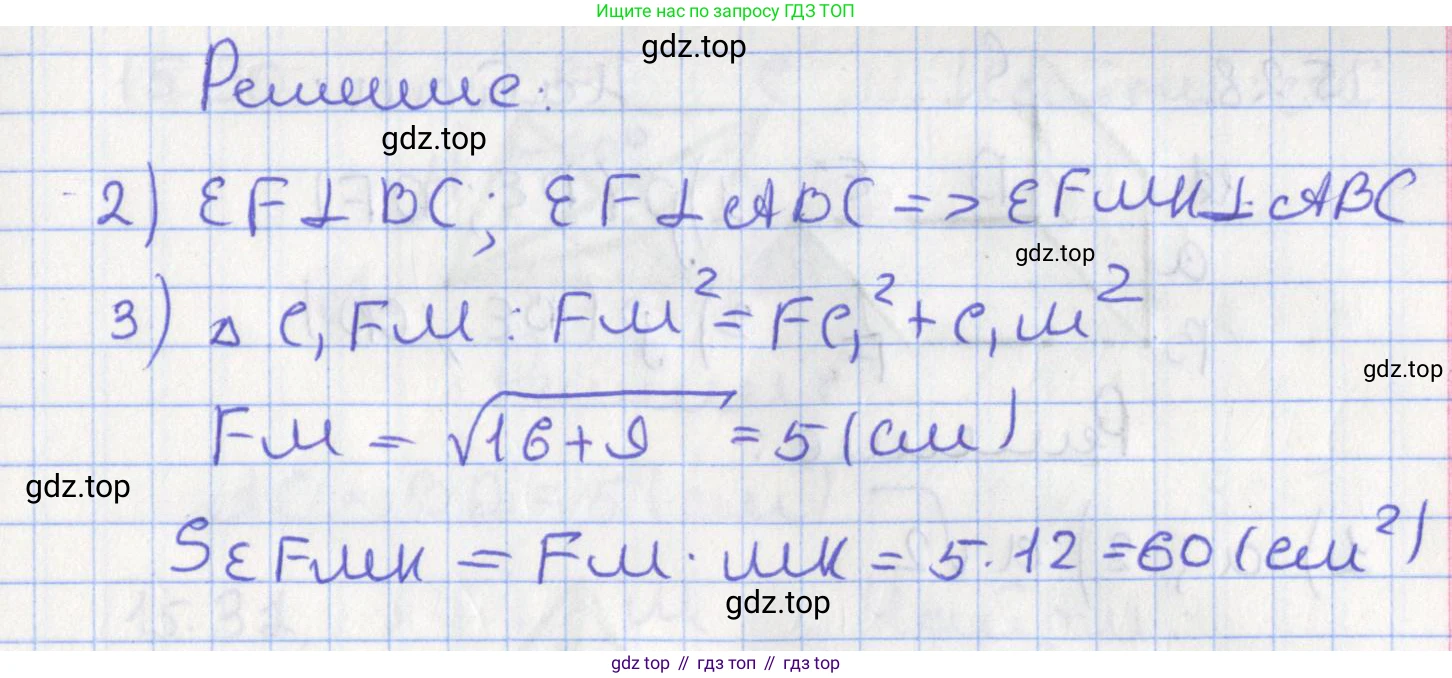 Ищите нас по запросу ГДЗ ТОП
gdz.top
Решение:
gdz.top
2) EF ⊥ BC; EF ⊥ ABC => EFMK ⊥ ABC
gdz.top
3) △ C₁FM : FM² = FC₁² + C₁M²
gdz.top
FM = √16+9 = 5 (см)
gdz.top
S EFMK = FM · MK = 5 · 12 = 60 (см²)
gdz.top
gdz top // гдз топ // гдз top